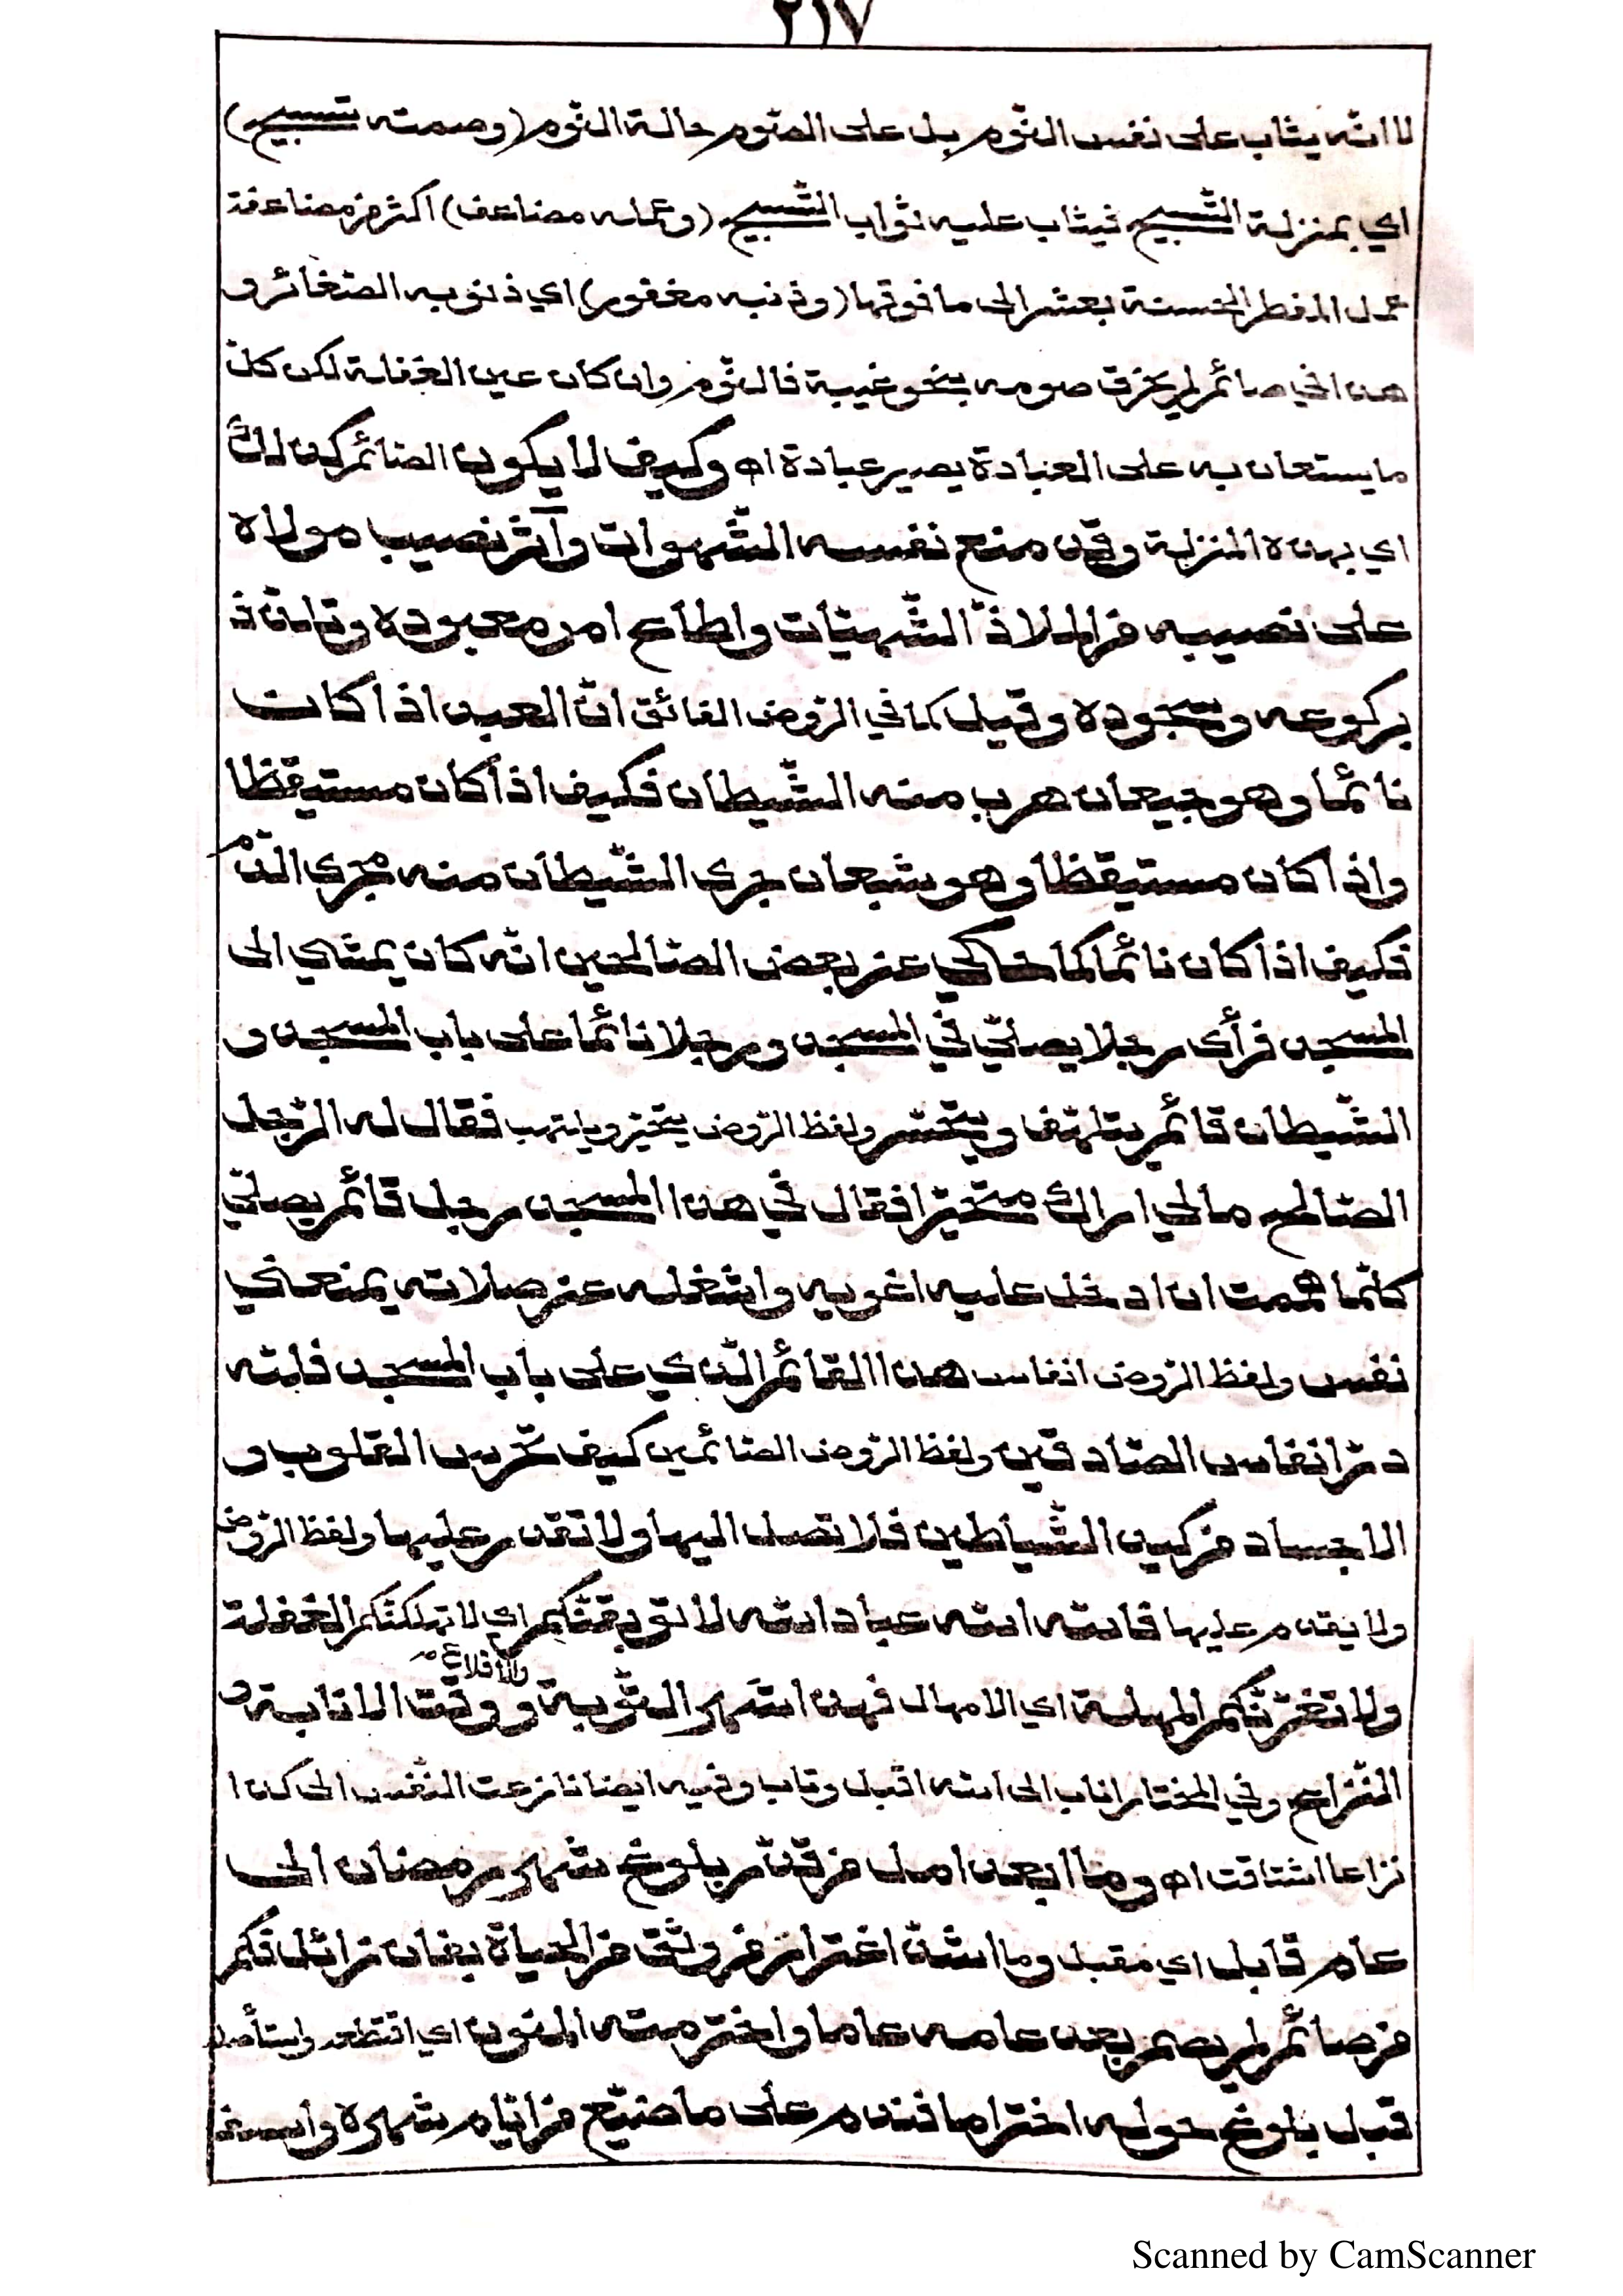 ٢١٧
لا انّه يثاب على نفس النّوم بل على الصّوم حالة النّوم (وصمته تسبيح)
اي بمنزلة التّسبيح فيثاب عليه ثواب التّسبيح (وعمله مضاعف) اكثر من مضاعفة
عمل المفطر الحسنة بعشر الى ما فوقها (وذنبه مغفور) اي ذنوبه الصّغائر و
هذا في صائم لم يخرق صومه بنحو غيبة فالنّوم وان كان عين الغفلة لكن كلّ
ما يستعان به على العبادة يصير عبادة اه وكيف لا يكون الصّائم كذلك
اي بهذه المنزلة وقد منع نفسه الشّهوات وآثر نصيب مولاه
على نصيبه من الملاذّ الشّهيّات واطاع امر معبوده وتلذّذ
بركوعه وسجوده وقيل كما في الرّوض الفائق انّ العبد اذا كان
نائما وهو جيعان هرب منه الشّيطان فكيف اذا كان مستيقظا
واذا كان مستيقظا وهو شبعان جرى الشّيطان منه مجرى الدّم
فكيف اذا كان نائما كما حكي عن بعض الصّالحين انّه كان يمشي الى
المسجد فرأى رجلا يصلّي في المسجد ورجلا نائما على باب المسجد و
الشّيطان قائم يتلهّف ويتحسّر ولفظ الرّوض يتحيّر ويلتهب فقال له الرّجل
الصّالح ما لي اراك متحيّرا فقال في هذا المسجد رجل قائم يصلّي
كلّما هممت ان ادخل عليه اغويه واشغله عن صلاته يمنعني
نفس ولفظ الرّوض انفاس هذا القائم الّذي على باب المسجد فللّه
درّ انفاس الصّادقين ولفظ الرّوض الصّائمين كيف تحرس القلوب و
الاجساد من كيد الشّياطين فلا تصل اليها ولا تقدر عليها ولفظ الرّوض
ولا يقدم عليها فاللّه اللّه عباد اللّه لا توبقنّكم اي لا تهلكنّكم الغفلة
ولا تغرّنّكم المهلة اي الامهال فهذا شهر التّوبة ووقت الانابة و
والاقلاع م
النّزاع وفي المختار اناب الى اللّه اقبل وتاب وفيه ايضا نازعت النّفس الى كذا
نزاعا اشتاقت اه وما ابعد امل من قدّم بلوغ شهر رمضان الى
عام قابل اي مقبل وما اشدّ اغترار من وثق من الحياة بفان زائل فكم
من صائم لم يصم بعد عامه عاما واخترمته المنون اي اقتطعه واستأصله
قبل بلوغ حوله اختراما فندم على ما ضيّع من ايّام شهره وأسف
Scanned by CamScanner